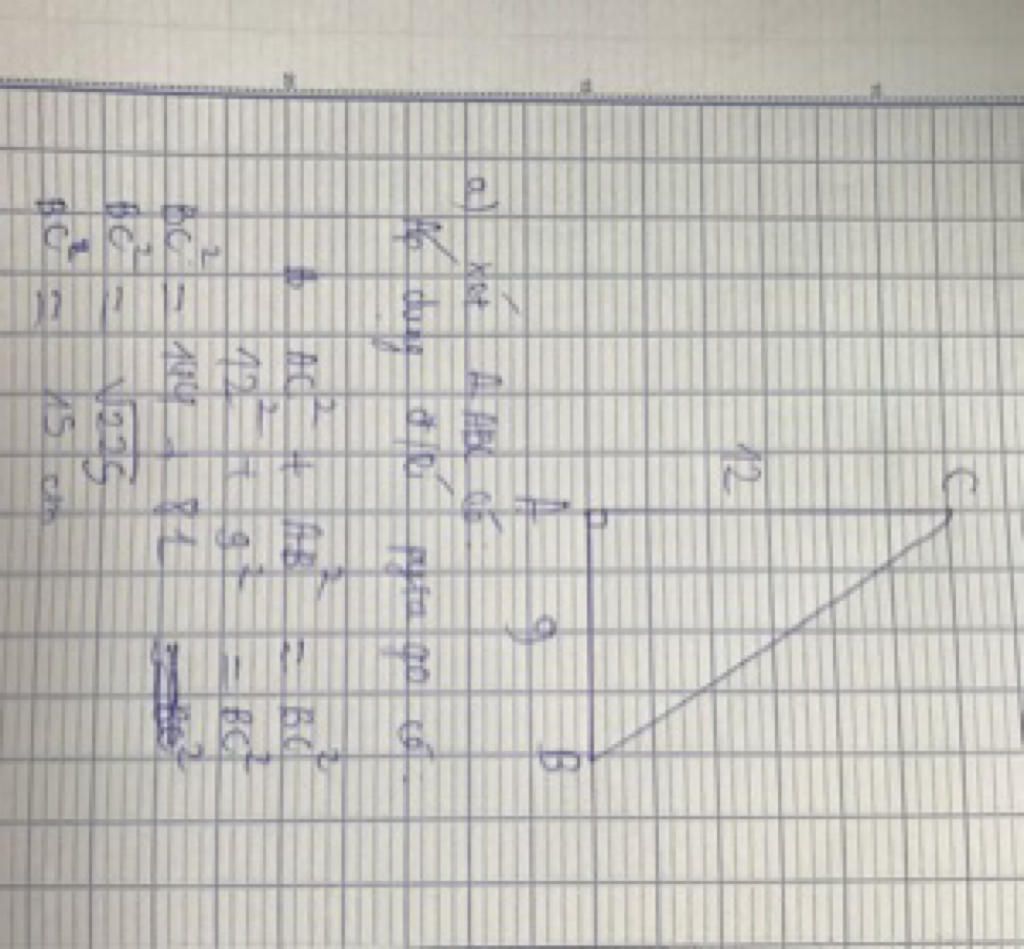 C
12
A
9
B
a) xét Δ ABC có
Áp dụng đ/lí pyta go có.
AC² + AB² = BC²
12² + 9² = BC²
BC² = 144 + 81
BC² = √225
BC² = 15 cm